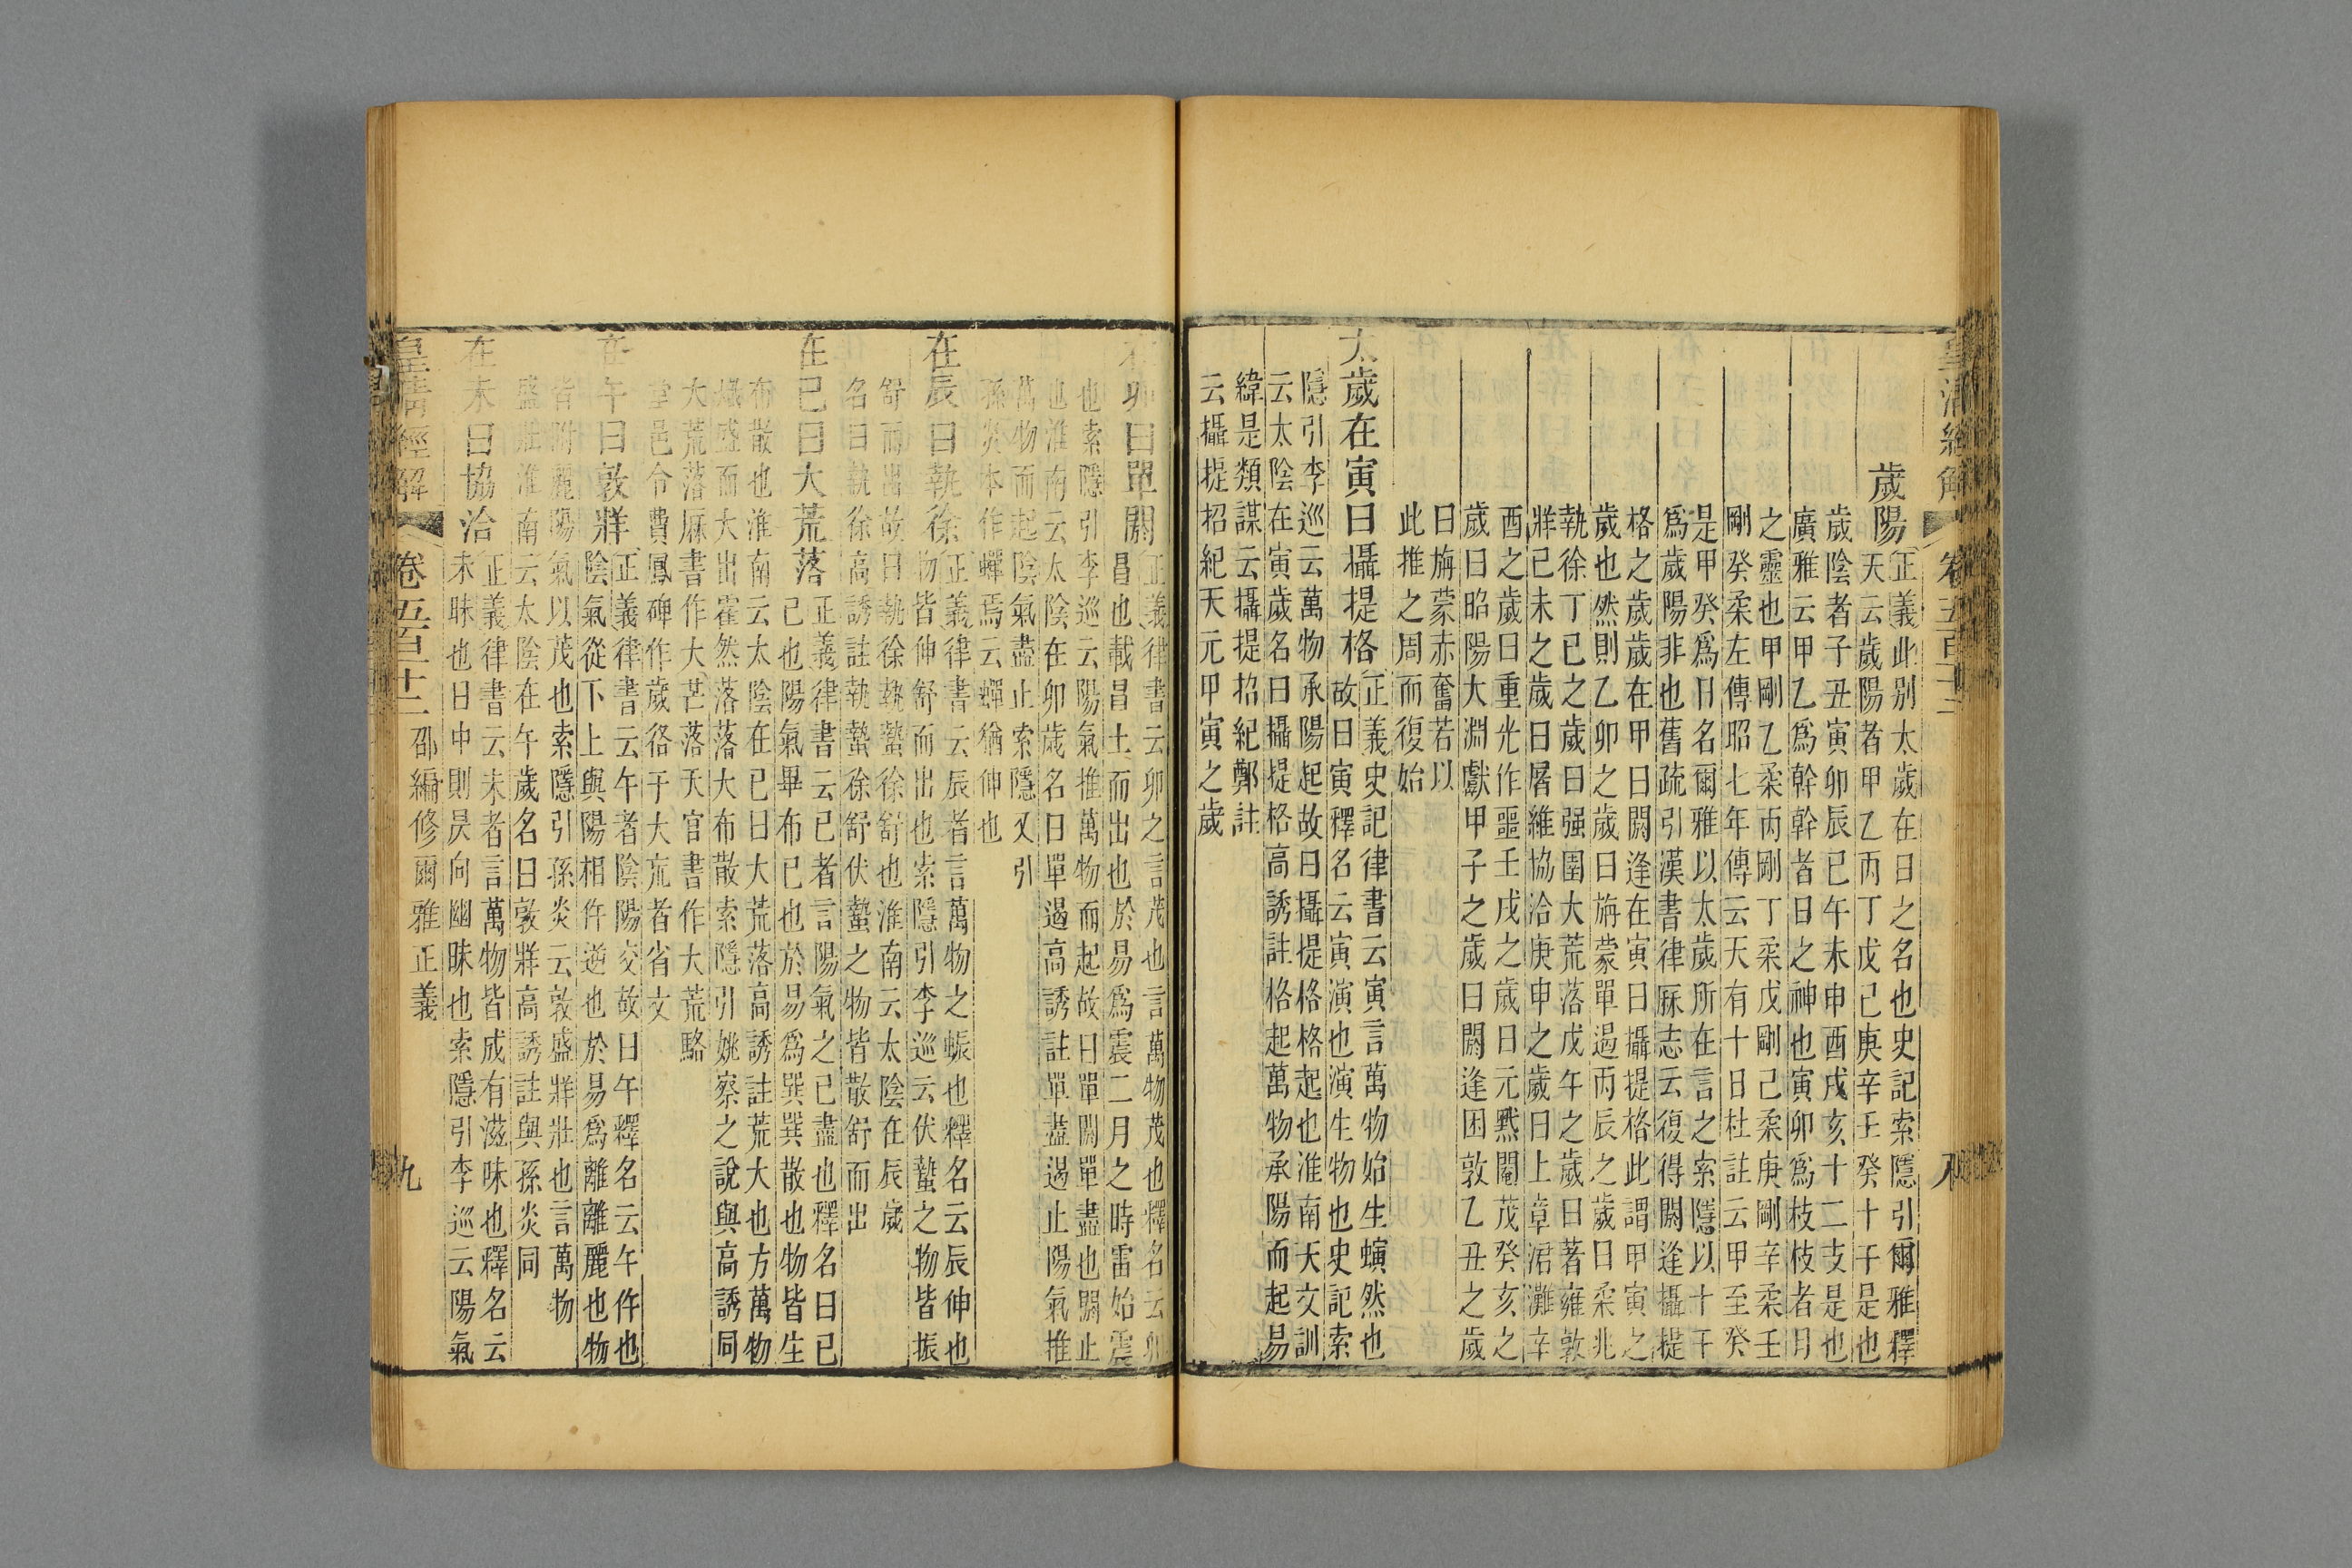 皇清經解 卷五百十二 八
歲陽 正義此別太歲在日之名也史記索隱引爾雅釋
天云歲陽者甲乙丙丁戊己庚辛壬癸十干是也
歲陰者子丑寅卯辰巳午未申酉戌亥十二支是也
廣雅云甲乙爲幹幹者日之神也寅卯爲枝枝者月
之靈也甲剛乙柔丙剛丁柔戊剛己柔庚剛辛柔壬
剛癸柔左傳昭七年傳云天有十日杜註云甲至癸
是甲癸爲日名爾雅以太歲所在言之索隱以十干
爲歲陽非也舊疏引漢書律厤志云復得閼逢攝提
格之歲歲在甲曰閼逢在寅曰攝提格此謂甲寅之
歲也然則乙卯之歲曰旃蒙單遏丙辰之歲曰柔兆
執徐丁巳之歲曰强圉大荒落戊午之歲曰著雍敦
牂己未之歲曰屠維協洽庚申之歲曰上章涒灘辛
酉之歲曰重光作噩壬戌之歲曰元黓閹茂癸亥之
歲曰昭陽大淵獻甲子之歲曰閼逢困敦乙丑之歲
曰旃蒙赤奮若以
此推之周而復始
太歲在寅曰攝提格 正義史記律書云寅言萬物始生螾然也
故曰寅釋名云寅演也演生物也史記索
隱引李巡云萬物承陽起故曰攝提格格起也淮南天文訓
云太陰在寅歲名曰攝提格高誘註格起萬物承陽而起易
緯是類謀云攝提招紀鄭註
云攝提招紀天元甲寅之歲
在卯曰單閼 正義律書云卯之言茂也言萬物茂也釋名云卯
冒也載冒土而出也於易爲震二月之時雷始震
也索隱引李巡云陽氣推萬物而起故曰單閼單盡也閼止
也淮南云太陰在卯歲名曰單遏高誘註單盡遏止陽氣推
萬物而起陰氣盡止索隱又引
孫炎本作蟬焉云蟬猶伸也
在辰曰執徐 正義律書云辰者言萬物之蜄也釋名云辰伸也
物皆伸舒而出也索隱引李巡云伏蟄之物皆振
舒而出故曰執徐執蟄徐舒也淮南云太陰在辰歲
名曰執徐高誘註執蟄徐舒伏蟄之物皆散舒而出
在巳曰大荒落 正義律書云巳者言陽氣之已盡也釋名曰巳
已也陽氣畢布已也於易爲巽巽散也物皆生
布散也淮南云太陰在巳曰大荒落高誘註荒大也方萬物
熾盛而大出霍然落落大布散索隱引姚察之說與高誘同
大荒落厤書作大芒落天官書作大荒駱
堂邑令費鳳碑作歲𢓜于大荒者省文
在午曰敦牂 正義律書云午者陰陽交故曰午釋名云午仵也
陰氣從下上與陽相仵逆也於易爲離離麗也物
皆附麗陽氣以茂也索隱引孫炎云敦盛牂壯也言萬物
盛壯淮南云太陰在午歲名曰敦牂高誘註與孫炎同
在未曰協洽 正義律書云未者言萬物皆成有滋味也釋名云
未昧也日中則昃向幽昧也索隱引李巡云陽氣
皇清經解 卷五百十二 邵編修爾雅正義 九